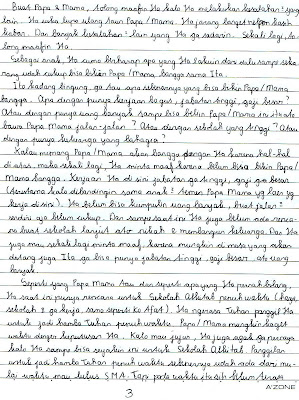 Buat Papa & Mama, tolong maafin Ita kalo Ita melakukan kesalahan² yang
lain. Ita suka lupa ulang taun Papa/Mama. Ita jarang banget nelpon kasih
kabar. Dan banyak kesalahan² lain yang Ita ga sadarin. Sekali lagi, to
long maafin Ita.
Sebagai anak, Ita cuma berharap apa yang Ita lakuin dari dulu sampe seka
rang udah cukup bisa bikin Papa/Mama bangga sama Ita.
Ita kadang bingung, ga tau apa sebenarnya yang bisa bikin Papa/Mama
bangga. Apa dengan punya kerjaan bagus, jabatan tinggi, gaji besar?
Atau dengan punya uang banyak sampe bisa bikin Papa/Mama
bawa Papa Mama jalan-jalan? Atau dengan sekolah yang tinggi? Atau
dengan punya keluarga yang bahagia?
Kalau memang Papa/Mama akan bangga dengan Ita karena hal-hal
di atas, maka sekali lagi, Ita minta maaf karena belum bisa bikin Papa/
Mama bangga. Kerjaan Ita di sini jabatan ga tinggi, gaji ga besar
(terutama kalo dibandingin sama anak² temen Papa Mama yg laen yg
kerja di sini). Ita belum bisa kumpulin uang banyak, buat jalan²
sendiri aja belum cukup. Dan sampe saat ini Ita juga belum ada renca-
na buat sekolah lanjut ato nikah & membangun keluarga. Dan Ita
juga mau sekali lagi minta maaf, karena mungkin di masa yang akan
datang juga Ita ga bisa punya jabatan tinggi, gaji besar, ato uang
banyak.
Seperti yang Papa Mama tau dan seperti apa yang Ita pernah bilang,
Ita saat ini punya rencana untuk Sekolah Alkitab penuh waktu (hanya
sekolah & ga kerja, sama seperti Ko Afat). Ita ngerasa Tuhan panggil Ita
untuk jadi hamba Tuhan penuh waktu. Papa/Mama mungkin kaget
waktu denger keputusan Ita. Kalo mau jujur, Ita juga agak ga percaya
kalo Ita sampe bisa yakin ini untuk Sekolah Alkitab. Panggilan
untuk jadi hamba Tuhan penuh waktu sebenernya udah ada dari mu-
lai waktu mau lulus SMA. Tapi pada waktu itu Ita belum
A'ZONE
3